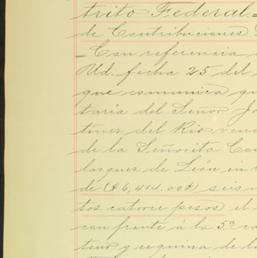 trito Federal.=
de Contribuciones
- Con referencia
Ud. fecha 25 del
que comunica que
taría del Señor Jo
tinez del Rio vend
de la Señorita Con
lazquez de León in
de ($6,414.00¢) seis
tos catorce pesos el
con frente á la 5ª ca
tino y esquina de la